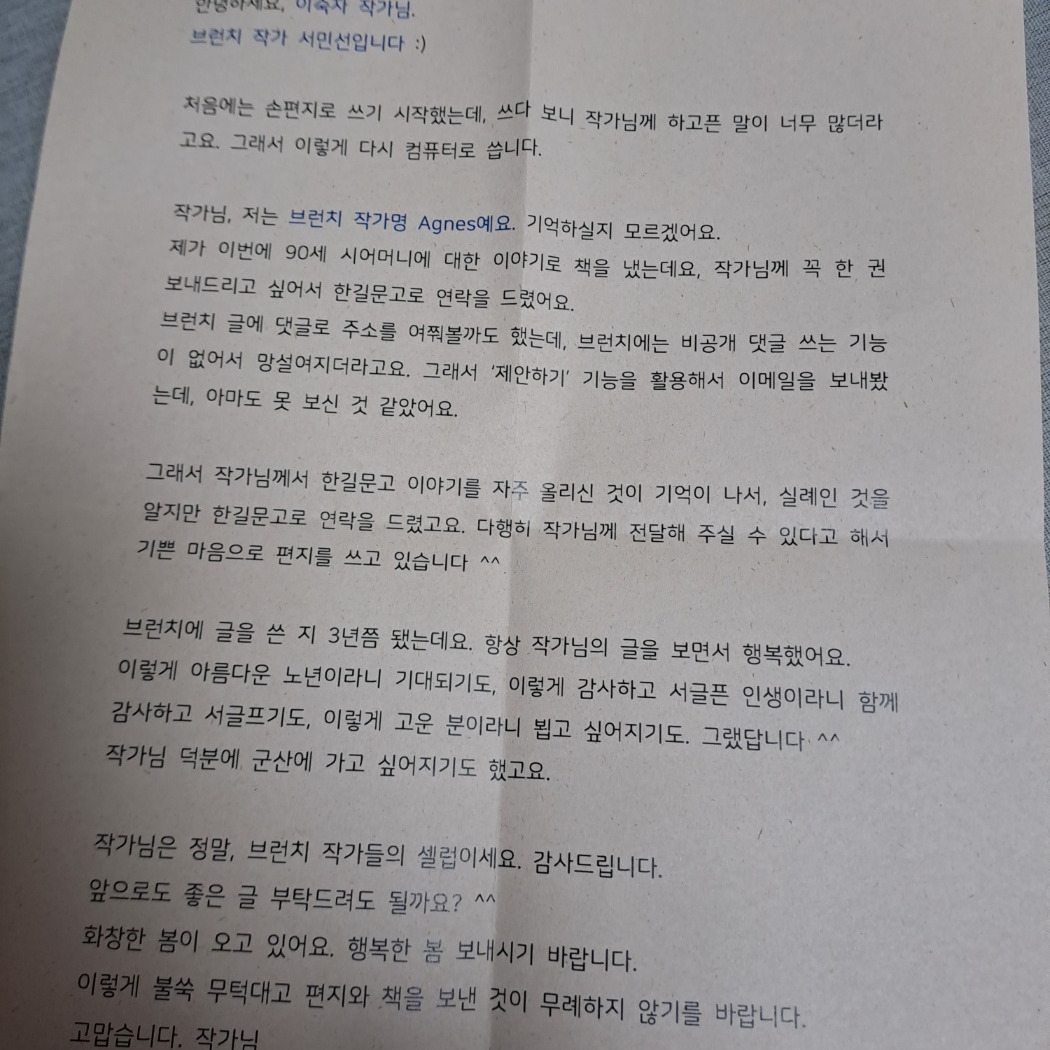 안녕하세요, 이숙자 작가님.
브런치 작가 서민선입니다 :)
처음에는 손편지로 쓰기 시작했는데, 쓰다 보니 작가님께 하고픈 말이 너무 많더라
고요. 그래서 이렇게 다시 컴퓨터로 씁니다.
작가님, 저는 브런치 작가명 Agnes예요. 기억하실지 모르겠어요.
제가 이번에 90세 시어머니에 대한 이야기로 책을 냈는데요, 작가님께 꼭 한 권
보내드리고 싶어서 한길문고로 연락을 드렸어요.
브런치 글에 댓글로 주소를 여쭤볼까도 했는데, 브런치에는 비공개 댓글 쓰는 기능
이 없어서 망설여지더라고요. 그래서 '제안하기' 기능을 활용해서 이메일을 보내봤
는데, 아마도 못 보신 것 같았어요.
그래서 작가님께서 한길문고 이야기를 자주 올리신 것이 기억이 나서, 실례인 것을
알지만 한길문고로 연락을 드렸고요. 다행히 작가님께 전달해 주실 수 있다고 해서
기쁜 마음으로 편지를 쓰고 있습니다 ^^
브런치에 글을 쓴 지 3년쯤 됐는데요. 항상 작가님의 글을 보면서 행복했어요.
이렇게 아름다운 노년이라니 기대되기도, 이렇게 감사하고 서글픈 인생이라니 함께
감사하고 서글프기도, 이렇게 고운 분이라니 뵙고 싶어지기도. 그랬답니다 ^^
작가님 덕분에 군산에 가고 싶어지기도 했고요.
작가님은 정말, 브런치 작가들의 셀럽이세요. 감사드립니다.
앞으로도 좋은 글 부탁드려도 될까요? ^^
화창한 봄이 오고 있어요. 행복한 봄 보내시기 바랍니다.
이렇게 불쑥 무턱대고 편지와 책을 보낸 것이 무례하지 않기를 바랍니다.
고맙습니다. 작가님